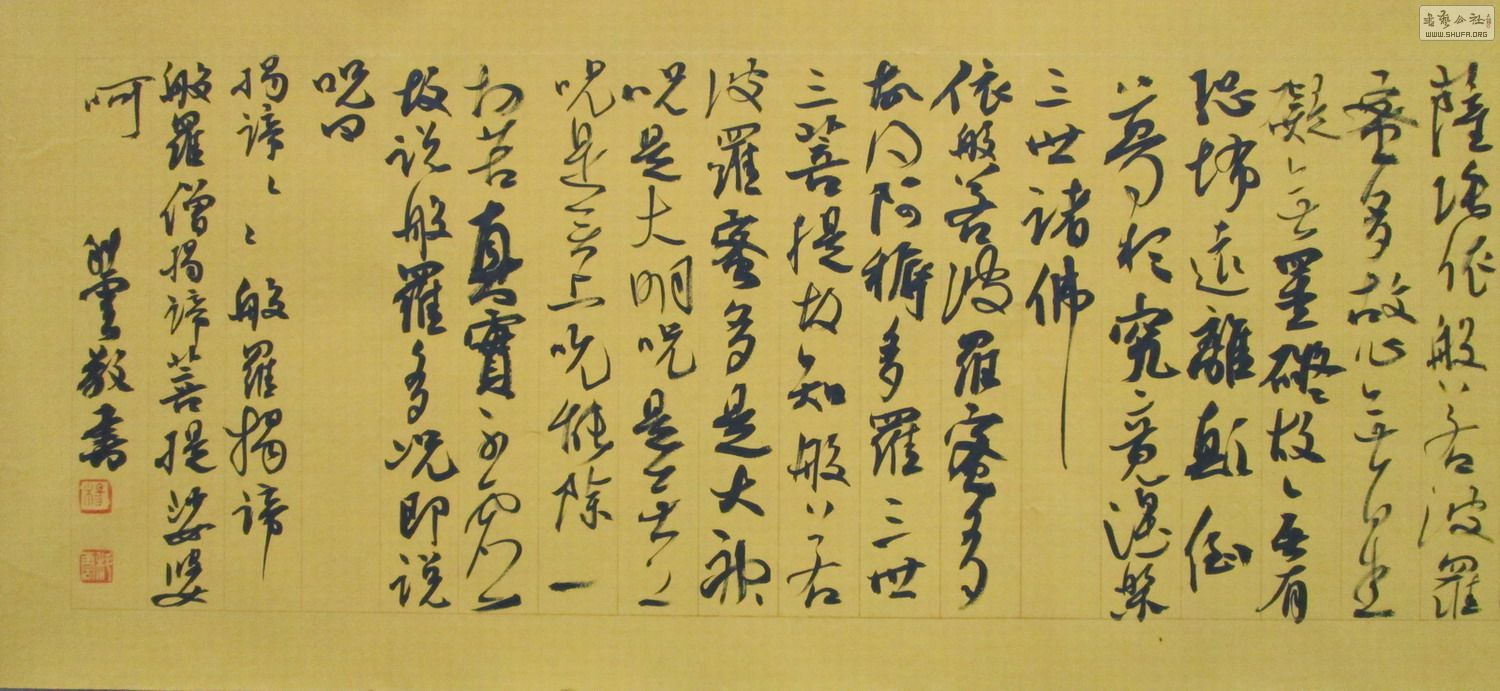 薩埵依般若波羅
蜜多故心无罣
礙〻无罣礙故〻无有
恐怖遠離顛倒
夢想究竟涅槃
三世諸佛
依般若波羅蜜多
故得阿耨多羅三世
三菩提故知般若
波羅蜜多是大神
呪是大明呪是无上
呪是无上呪能除一
切苦真實不虛
故说般羅多呪即说
呪曰
揭諦〻〻般羅揭諦
般羅僧揭諦菩提娑婆
呵
敬書
書藝公社
WWW.SHUFA.ORG